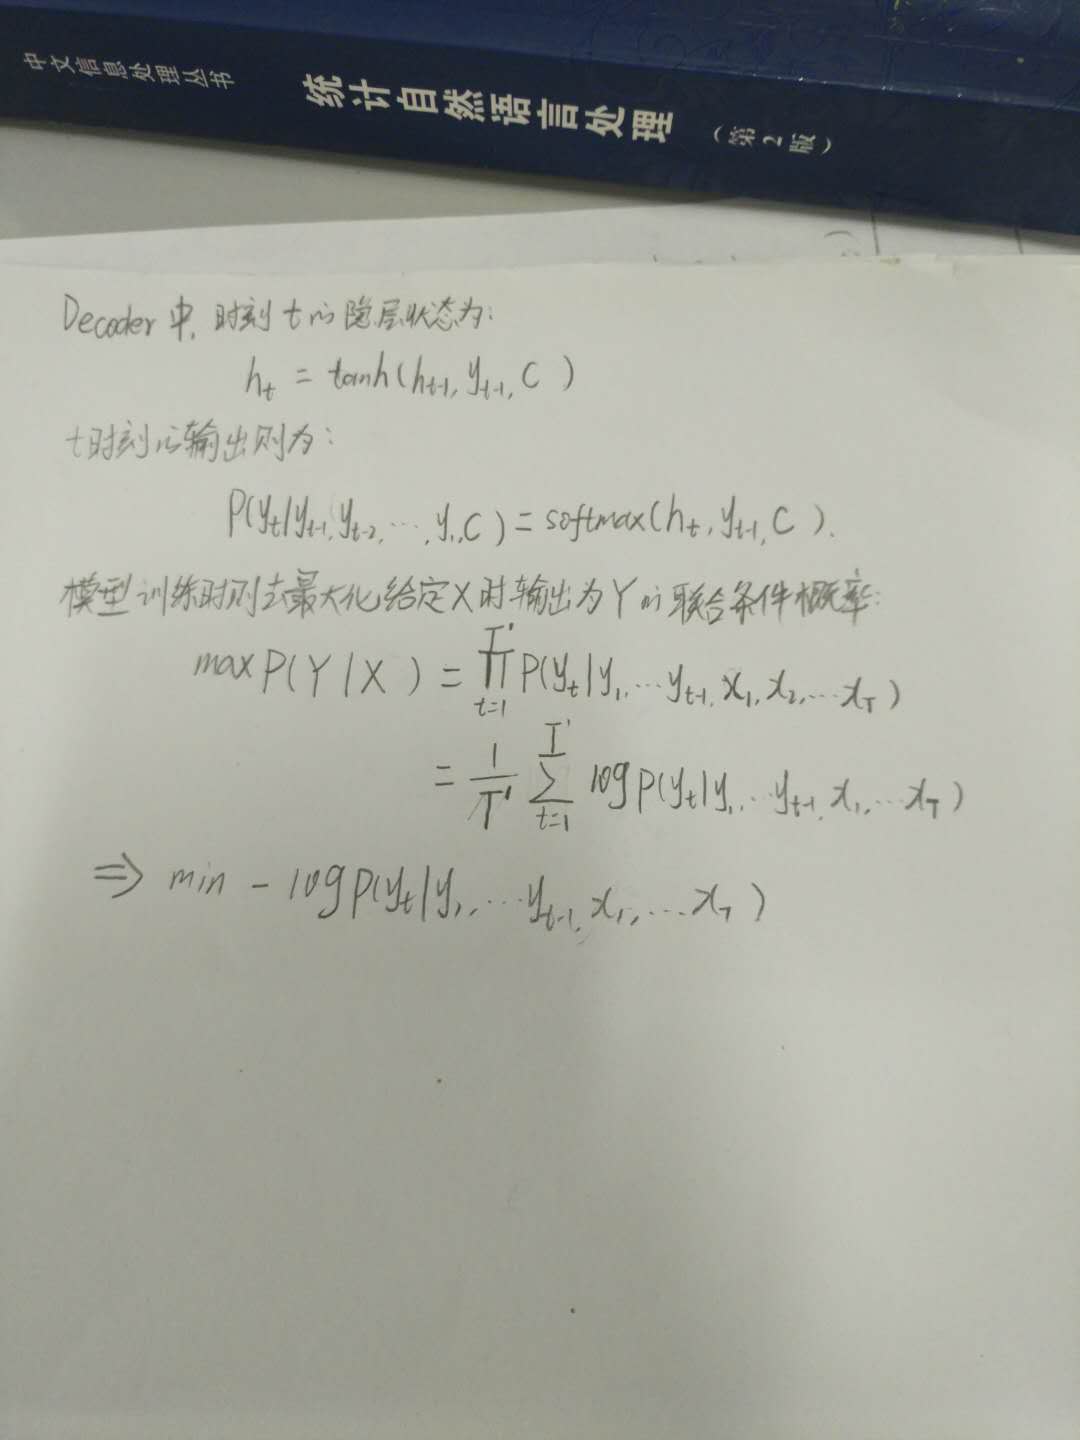 中文信息处理丛书 统计自然语言处理 (第2版)
Decoder中,时刻t的隐层状态为:
hₜ = tanh(hₜ₋₁, yₜ₋₁, C)
t时刻的输出则为:
P(yₜ|yₜ₋₁, yₜ₋₂, ..., y₁, C) = softmax(hₜ, yₜ₋₁, C).
模型训练时则去最大化给定X时输出为Y的联合条件概率:
max P(Y|X) = ∏ₜ₌₁ᵀ' P(yₜ|y₁, ...yₜ₋₁, x₁, x₂, ...x_T)
= 1/T' ∑ₜ₌₁ᵀ' log P(yₜ|y₁, ...yₜ₋₁, x₁, ...x_T)
⇒ min - log P(yₜ|y₁, ...yₜ₋₁, x₁, ...x_T)